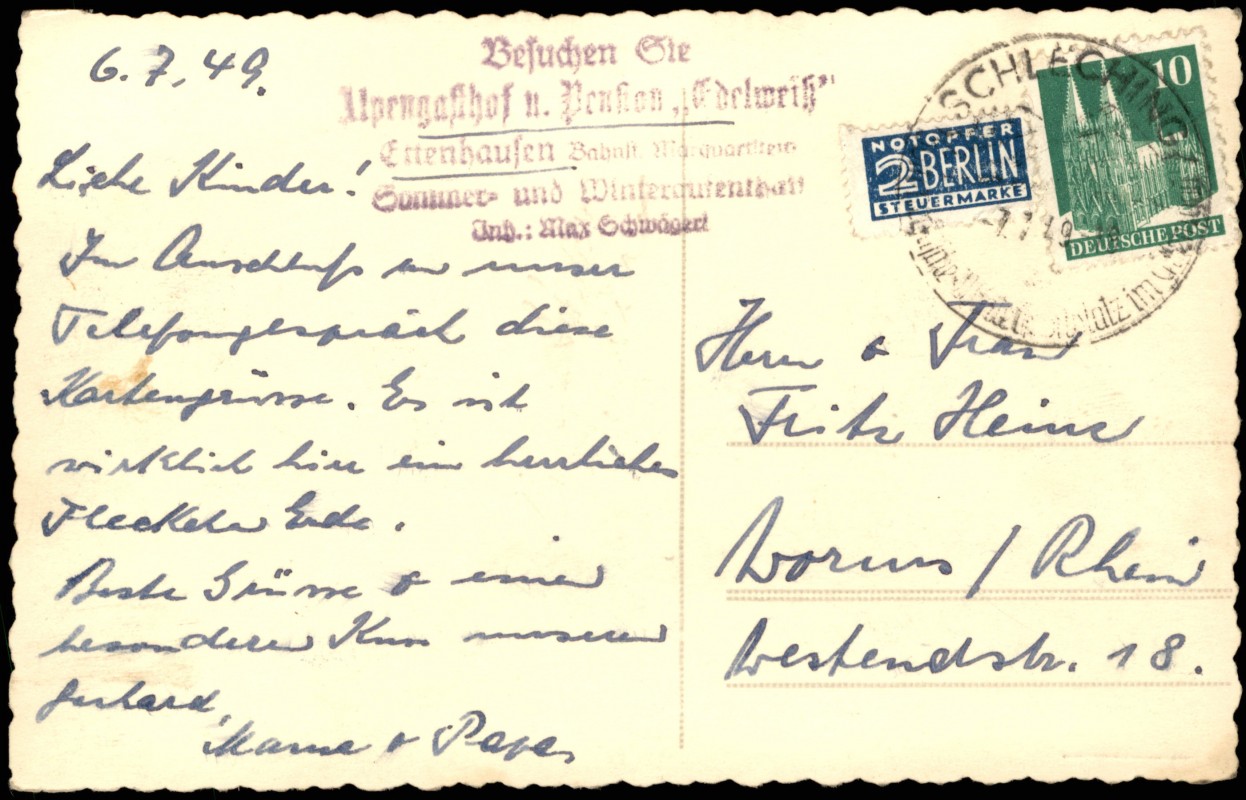 6. 7. 49.
Besuchen Sie
Alpengasthof u. Pension „Edelweiß"
Ettenhausen Bahnst. Marquartstein
Sommer- und Winteraufenthalt
Inh.: Max Schwägerl
Liebe Kinder!
Im Anschluß an unser
Telefongespräch diese
Kartengrüsse. Es ist
wirklich hier ein herrliches
Fleckchen Erde.
Beste Grüsse & einen
besonderen Kuss unserem
Gerhard,
Mama & Papa
NOTOPFER
2 BERLIN
STEUERMARKE
10
DEUTSCHE POST
SCHLECHING
-7.7.49
platz im
Herrn & Frau
Fritz Heinz
Worms / Rhein
Westendstr. 18.